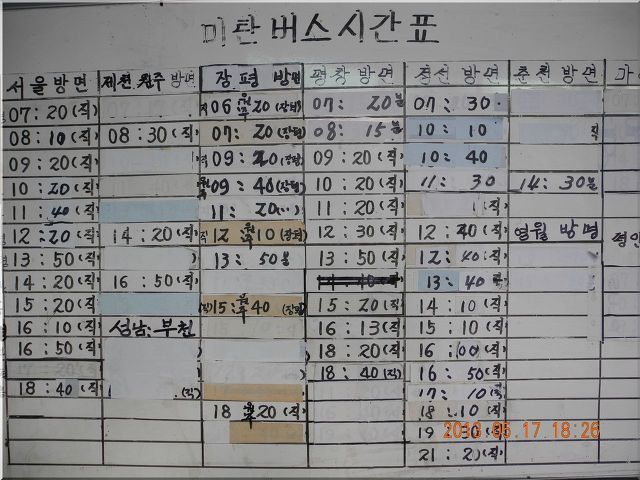 미탄버스시간표
서울방면 제천 원주 방면 장평 방면 평창방면 정선 방면 춘천 방면
07:20(직) 06 20(장평) 07: 20분 07: 30
08:10(직) 08:30(직) 07: 20(장평) 08: 15분 10: 10
09:20(직) 09:20(장평) 09:20(직) 10: 40
10:20(직) 09: 40(장평) 10:20(직) 11: 30 14:30분
11:40(직) 11: 20 11:20(직)
12:20(직) 14:20(직) 12 10(장평) 12:30(직) 12:40(직) 영월 방면
13:50(직) 13: 50분 13:50(직) 12:40(직)
14:20(직) 16:50(직) 13:40
15:20(직) 15:40(장평) 15:20(직) 14:10(직)
16:10(직) 성남:부천 16:13(직) 15:10(직)
16:50(직) 18:20(직) 16:00(직)
18:40(직) 18:40(직) 16:50(직)
(직) 17:10
18 20(직) 18:10(직)
19
21:2
18:26